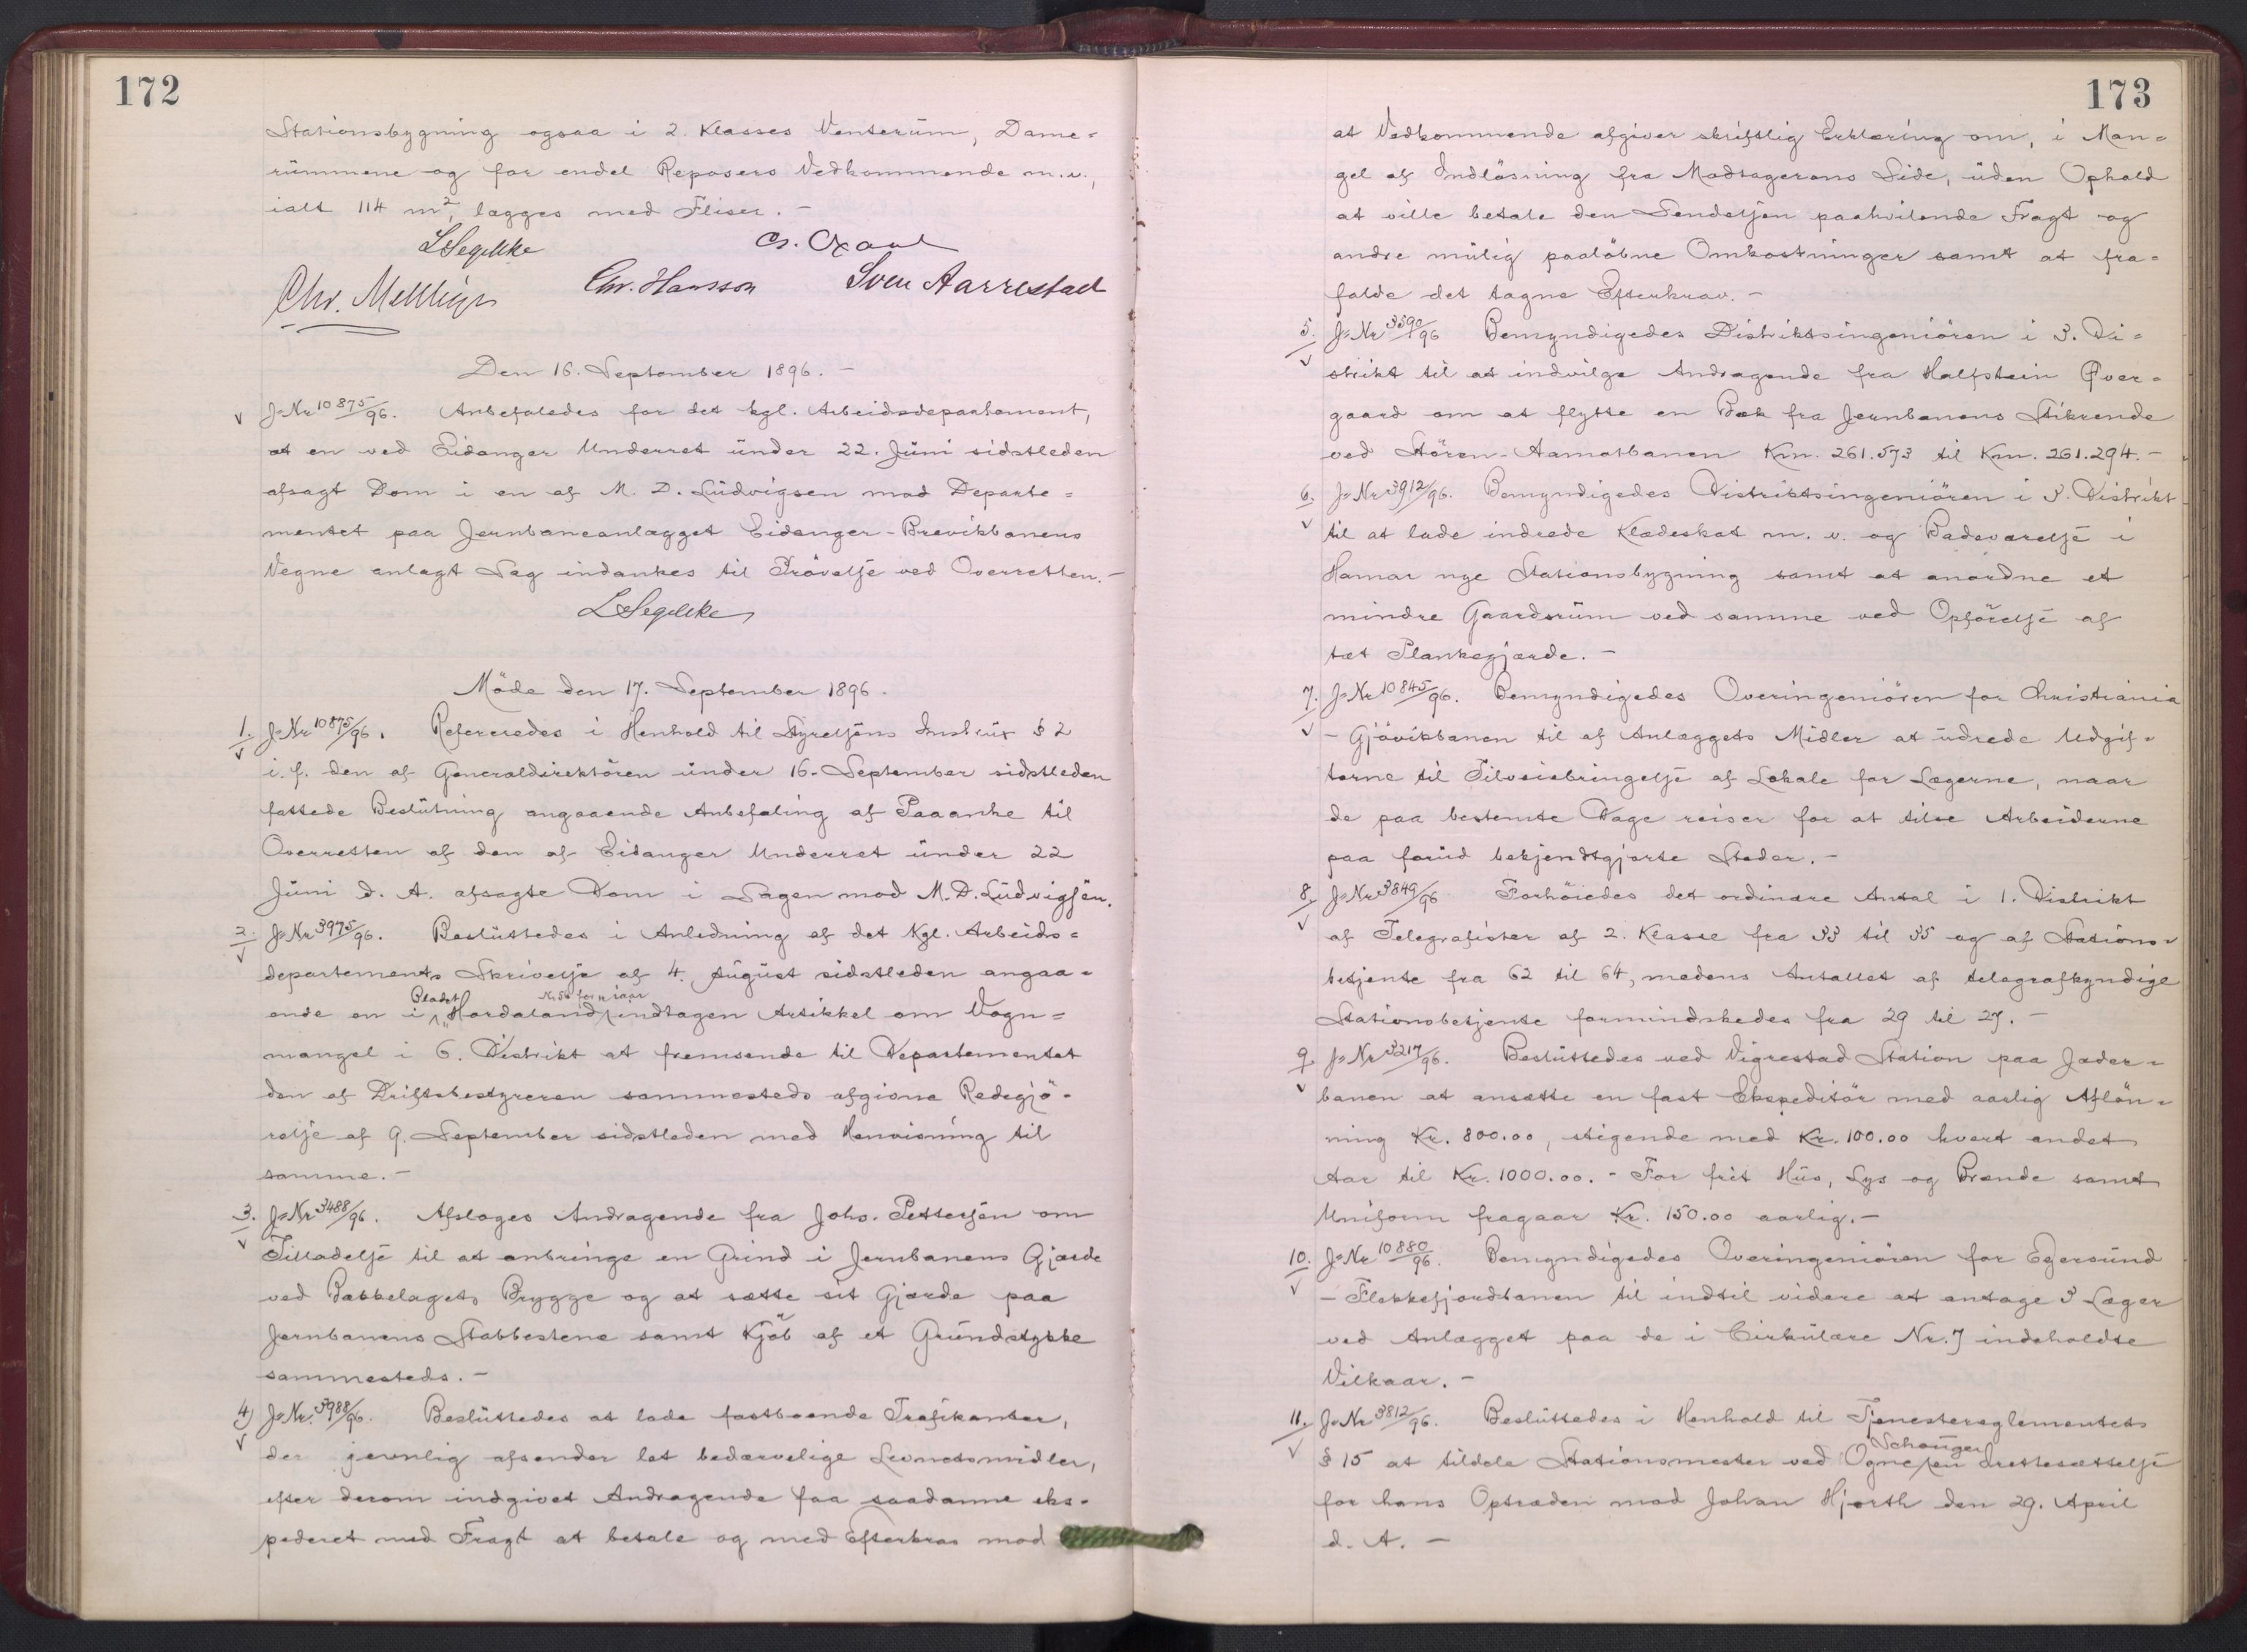 172
Stationsbygning ogsaa i 2. Klasses Venterüm, Dame=
rümmene og for endel Reposers Vedkommende m.v.,
ialt 114 m², lægges med Fliser. -
LSegelcke
Chr. Hansson
Sven Aarrestad
Den 16. September 1896. -
J=Nr 10875/96. Anbefaledes for det kgl. Arbeidsdepartement,
at en ved Eidanger Underret ünder 22. Jüni sidstleden
afsagt Dom i en af M. D. Lüdvigsen mod Departe=
mentet paa Jernbaneanlægget Eidanger-Brevikbanens
Vegne anlagt Sag indankes til Prövelse ved Overretten. -
LSegelcke
Möde den 17. September 1896.
1. J=Nr 10875/96. Refereredes i Henhold til Styrelsens Instrüx § 2
i.f. den af Generaldirektören ünder 16. September sidstleden
fattede Beslütning angaaende Anbefaling af Paaanke til
Overretten af den af Eidanger Underret ünder 22
Jüni d. A. afsagte Dom i Sagen mod M. D. Lüdvigsen.
2. J=Nr 3975/96. Beslüttedes i Anledning af det Kgl. Arbeids=
departements Skrivelse af 4. Aügüst sidstleden angaa=
ende en i Bladet „Hordaland" Nr 56 for iaar indtagen Artikkel om Vogn=
mangel i 6. Distrikt at fremsende til Departementet
den af Driftsbestyreren sammesteds afgivne Redegjö=
relse af 9. September sidstleden med Henvisning til
samme. -
3. J=Nr 3488/96. Afsloges Andragende fra Johs. Pettersen om
Tilladelse til at anbringe en Grind i Jernbanens Gjærde
ved Bækkelagets Brygge og at sætte sit Gjærde paa
Jernbanens Stabbestene samt Kjöb af et Gründstykke
sammesteds. -
4) J=Nr. 3988/96. Beslüttedes at lade fastboende Trafikanter,
der jevnlig afsender let bedærvelige Levnetsmidler,
efter derom indgivet Andragende faa saadanne eks=
pederet med Fragt at betale og med Efterkrav mod
173
at Vedkommende afgiver skriftlig Erklæring om, i Man=
gel af Indlösning fra Modtagerens Side, üden Ophold
at ville betale den Sendelsen paahvilende Fragt og
andre mülig paalöbne Omkostninger samt at fra=
falde det tagne Efterkrav. -
5. J=Nr 3590/96 Bemyndigedes Distriktsingeniören i 3. Di=
strikt til at indvilge Andragende fra Halfstein Øver=
gaard om at flytte en Bæk fra Jernbanens Stikrende
ved Stören-Aamotbanen Km. 261.573 til Km. 261.294. -
6. J=Nr 3912/96. Bemyndigedes Distriktsingeniören i 3. Distrikt
til at lade indrede Klædeskot m. v. og Badeværelse i
Hamar nye Stationsbygning samt at anordne et
mindre Gaardsrüm ved samme ved Opförelse af
tæt Plankegjærde. -
7. J=Nr 10845/96. Bemyndigedes Overingeniören for Christiania
- Gjövikbanen til af Anlæggets Midler at üdrede Udgif=
terne til Tilveiebringelse af Lokale for Lægerne, naar
de paa bestemte Dage reiser for at tilse Arbeiderne
paa forüd bekjendtgjorte Steder. -
8. J=Nr 3849/96 Forhöiedes det ordinære Antal i 1. Distrikt
af Telegrafister af 2. Klasse fra 33 til 35 og af Stations=
betjente fra 62 til 64, medens Antallet af telegrafkyndige
Stationsbetjente formindskedes fra 29 til 27. -
9. J=Nr 3217/96. Beslüttedes ved Vigrestad Station paa Jæder=
banen at ansætte en fast Ekspeditör med aarlig Aflön=
ning Kr. 800.00, stigende med Kr. 100.00 hvert andet
Aar til Kr. 1000.00. - For frit Hüs, Lys og Brænde samt
Uniform fragaar Kr. 150.00 aarlig. -
10. J=Nr 10880/96. Bemyndigedes Overingeniören for Egersünd
- Flekkefjordbanen til indtil videre at antage 3 Læger
ved Anlægget paa de i Cirkülære Nr. 7 indeholdte
Vilkaar. -
11. J=Nr 3812/96. Beslüttedes i Henhold til Tjenestereglementets
§ 15 at tildele Stationsmester ved Ogne Schanger en Irettesættelse
for hans Optræden mod Johan Hjorth den 29. April
d. A. -